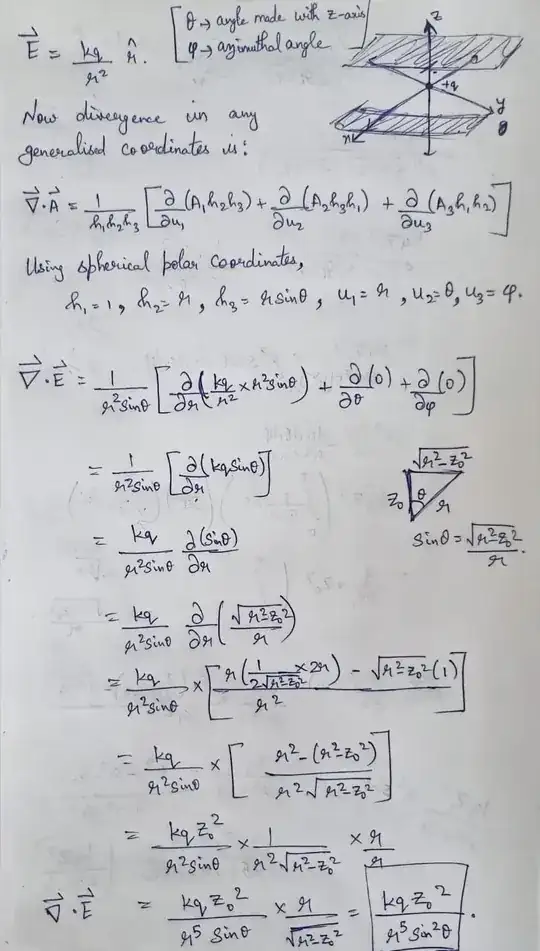 E⃗ = kq/r² r̂. [θ → angle made with z-axis
φ → azimuthal angle]
z
+q
y
θ
x
Now divergence in any
generalised coordinates is:
∇⃗·A⃗ = 1/(h₁h₂h₃) [∂/∂u₁ (A₁h₂h₃) + ∂/∂u₂ (A₂h₃h₁) + ∂/∂u₃ (A₃h₁h₂)]
Using spherical polar coordinates,
h₁ = 1, h₂ = r, h₃ = r sinθ, u₁ = r, u₂ = θ, u₃ = φ.
∇⃗·E⃗ = 1/(r² sinθ) [∂/∂r (kq/r² × r² sinθ) + ∂/∂θ (0) + ∂/∂φ (0)]
= 1/(r² sinθ) [∂(kq sinθ)/∂r]
√(r²-z₀²)
z₀ θ r
sinθ = √(r²-z₀²)/r.
= kq/(r² sinθ) ∂(sinθ)/∂r
= kq/(r² sinθ) ∂/∂r (√(r²-z₀²)/r)
= kq/(r² sinθ) × [(r(1/(2√(r²-z₀²)) × 2r) - √(r²-z₀²) (1))/r²]
= kq/(r² sinθ) × [(r² - (r²-z₀²))/(r²√(r²-z₀²))]
= kq z₀²/(r² sinθ) × 1/(r²√(r²-z₀²)) × r/r
∇⃗·E⃗ = kq z₀²/(r⁵ sinθ) × r/√(r²-z₀²) = kq z₀²/(r⁵ sin²θ).